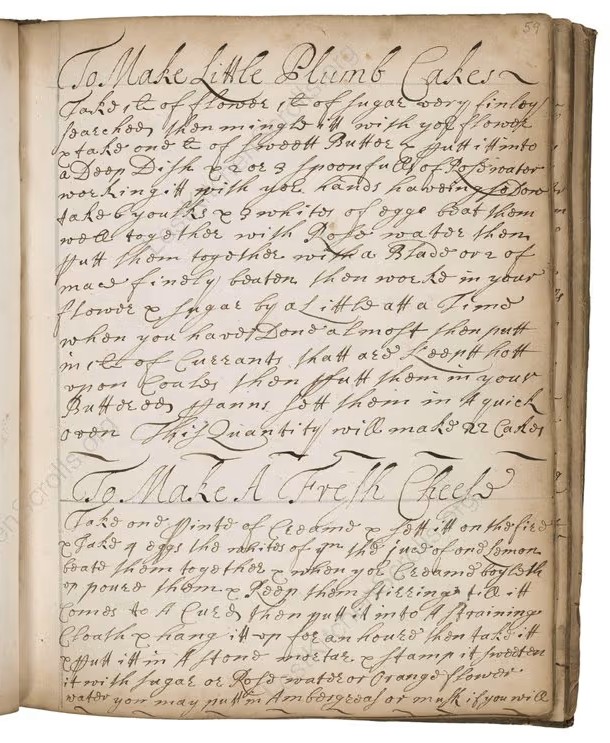 59
To Make Little Plumb Cakes
Take i℔ of flower i℔ of sugar very finley
searched then mingle itt with yor flower
& take one ℔ of sweett Butter & putt itt into
a Deep Dish & 2 or 3 spoonfulls of Rose water
working itt with yor hands haveing so Don
take 6 youlks & 3 whites of eggs beat them
well together with Rose water then
putt them together with a Blade or 2 of
mace finely beaten then worke in your
flower & sugar by a Little att a Time
when you have Done almost then putt
in i℔ of Currants thatt are Keept hott
upon Coales then putt them in your
Buttered panns sett them in A quick
oven This Quantity will make 22 Cakes
To Make A Fresh Cheese
Take one pinte of Creame & sett itt on the fire
& Take 4 eggs the whites of ym the juce of one lemon
beate them together & when yor Creame boyleth
up poure them & Keep them stirring till itt
comes to A Curd then putt it into A straining
Cloath & hang itt up for an houre then take itt
& putt itt in A stone mortar & stamp it sweeten
it with sugar or Rose water or Orange flower
water you may putt in Ambergreas or musk if you will